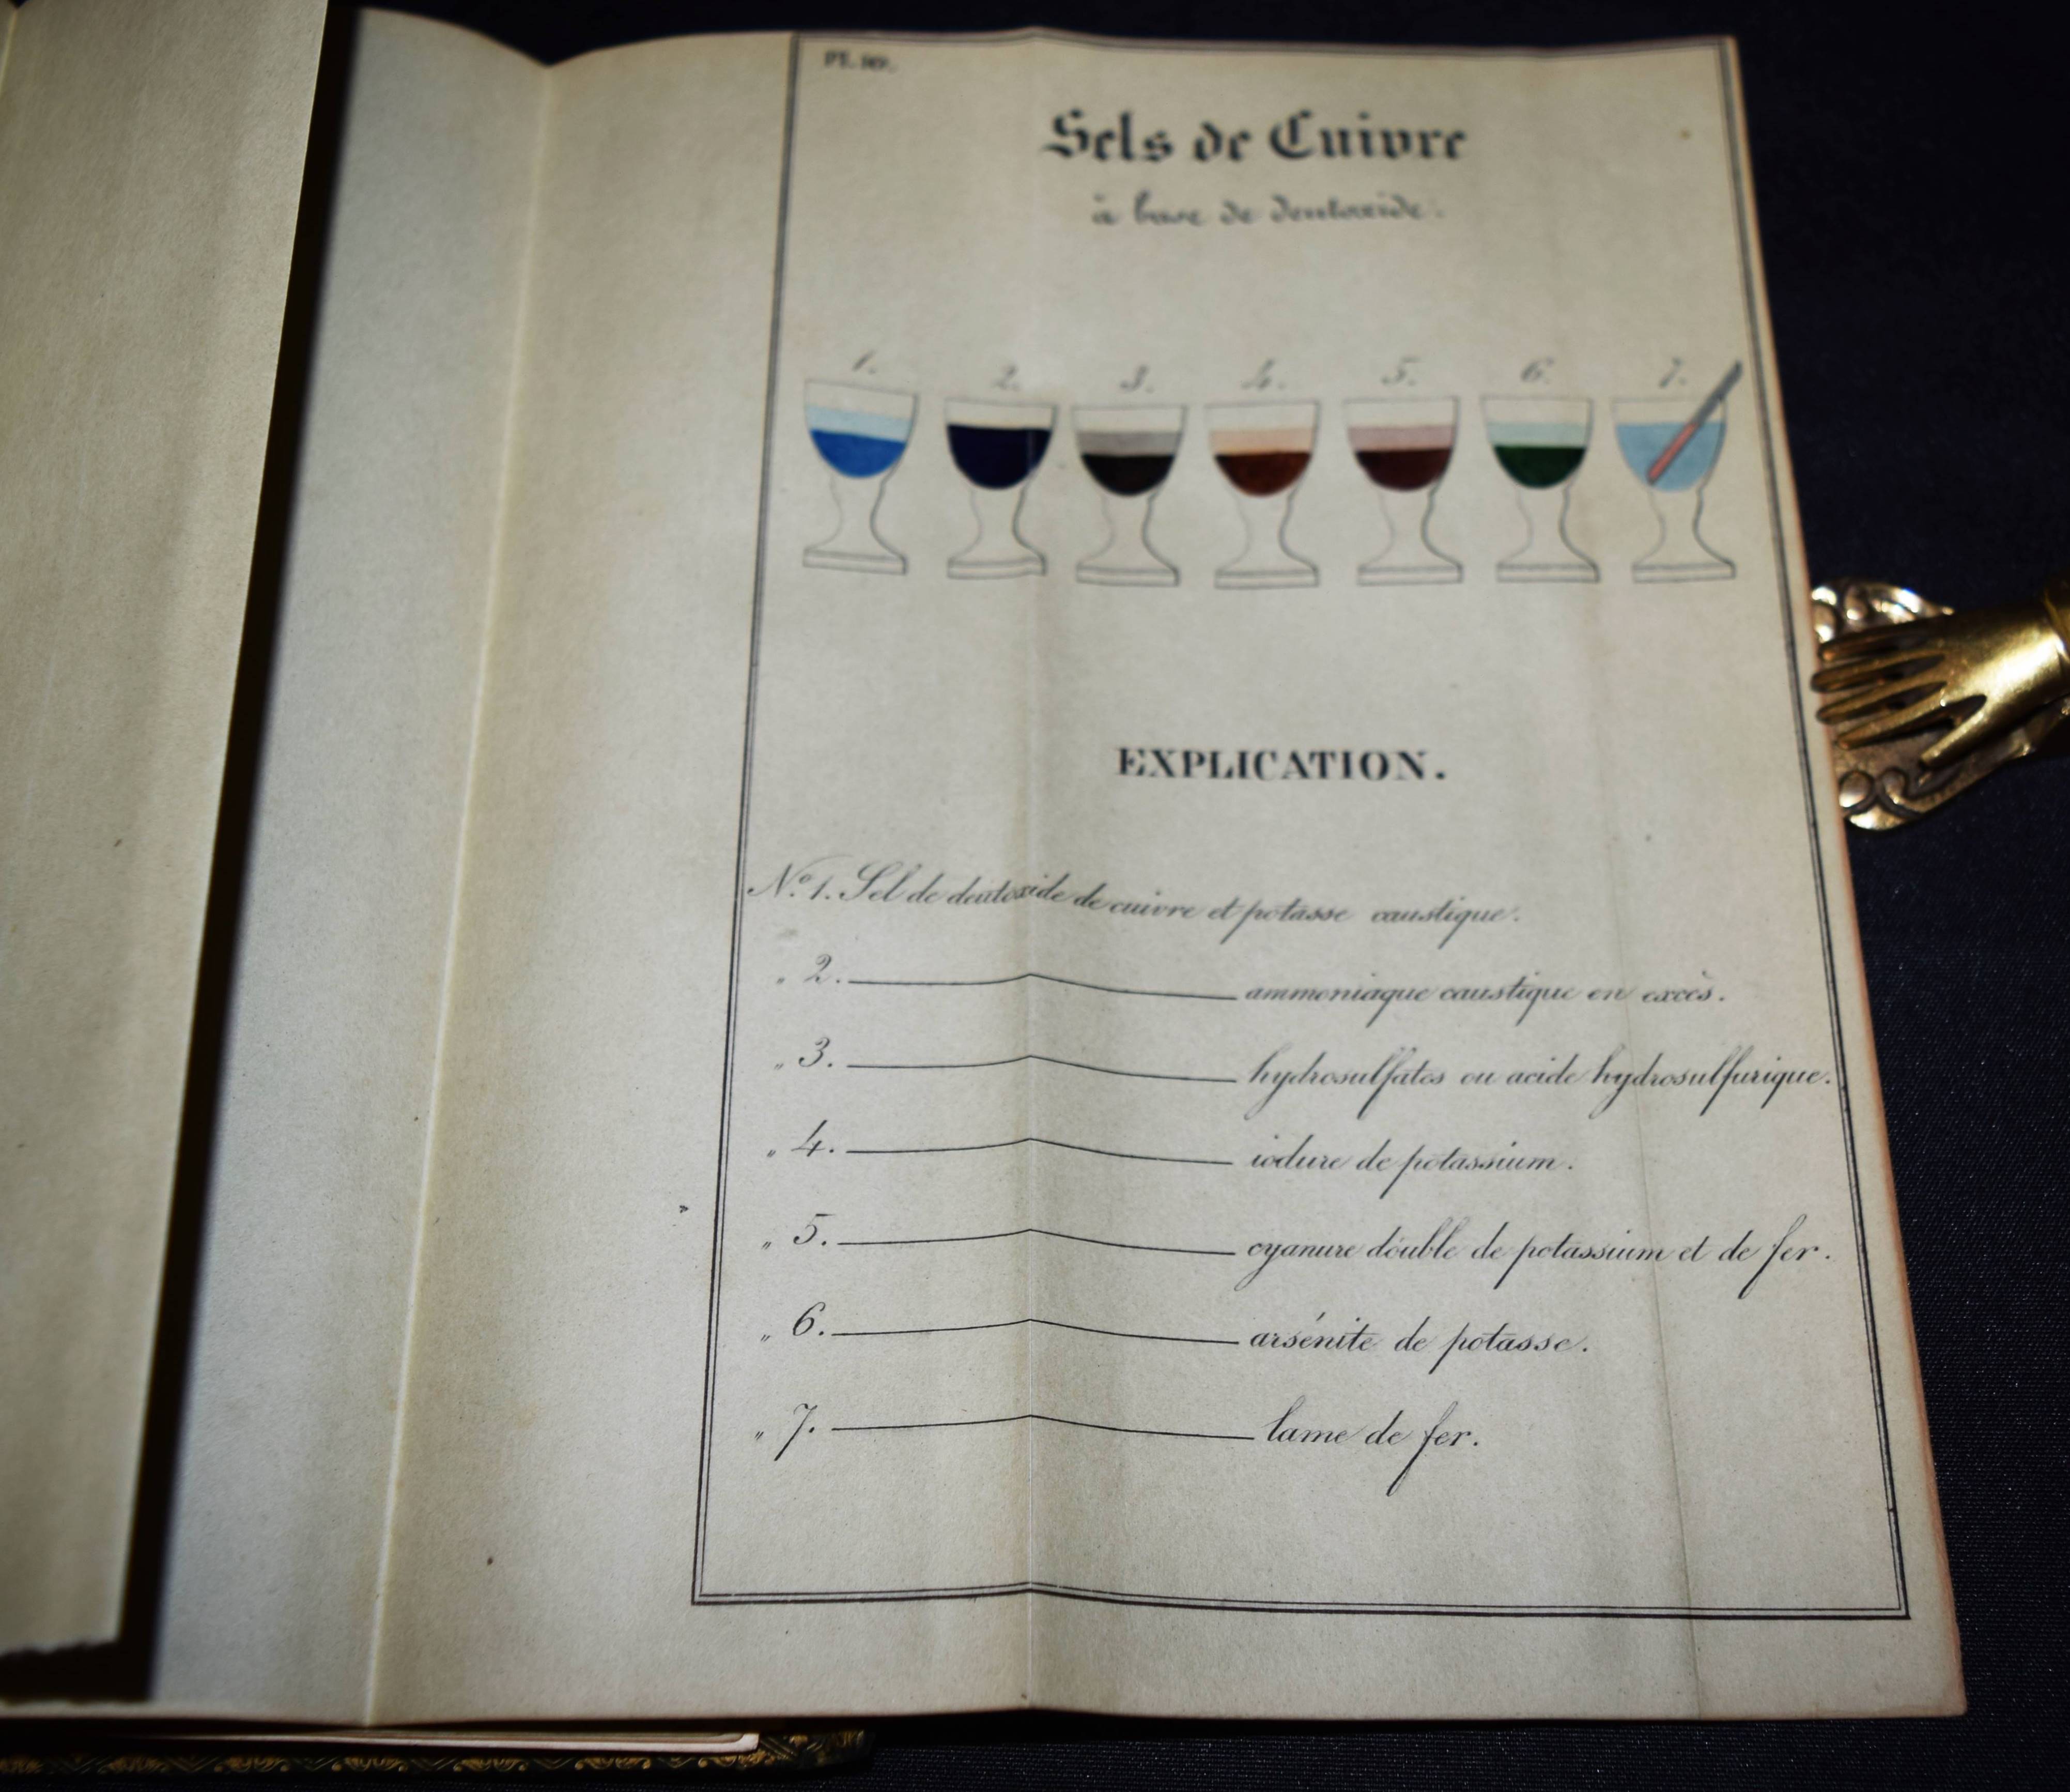 Pl. 10.
Sels de Cuivre
à base de deutoxide.
1. 2. 3. 4. 5. 6. 7.
EXPLICATION.
N.º 1. Sel de deutoxide de cuivre et potasse caustique.
" 2. ammoniaque caustique en excès.
" 3. hydrosulfates ou acide hydrosulfurique.
" 4. iodure de potassium.
" 5. cyanure double de potassium et de fer.
" 6. arsénite de potasse.
" 7. lame de fer.